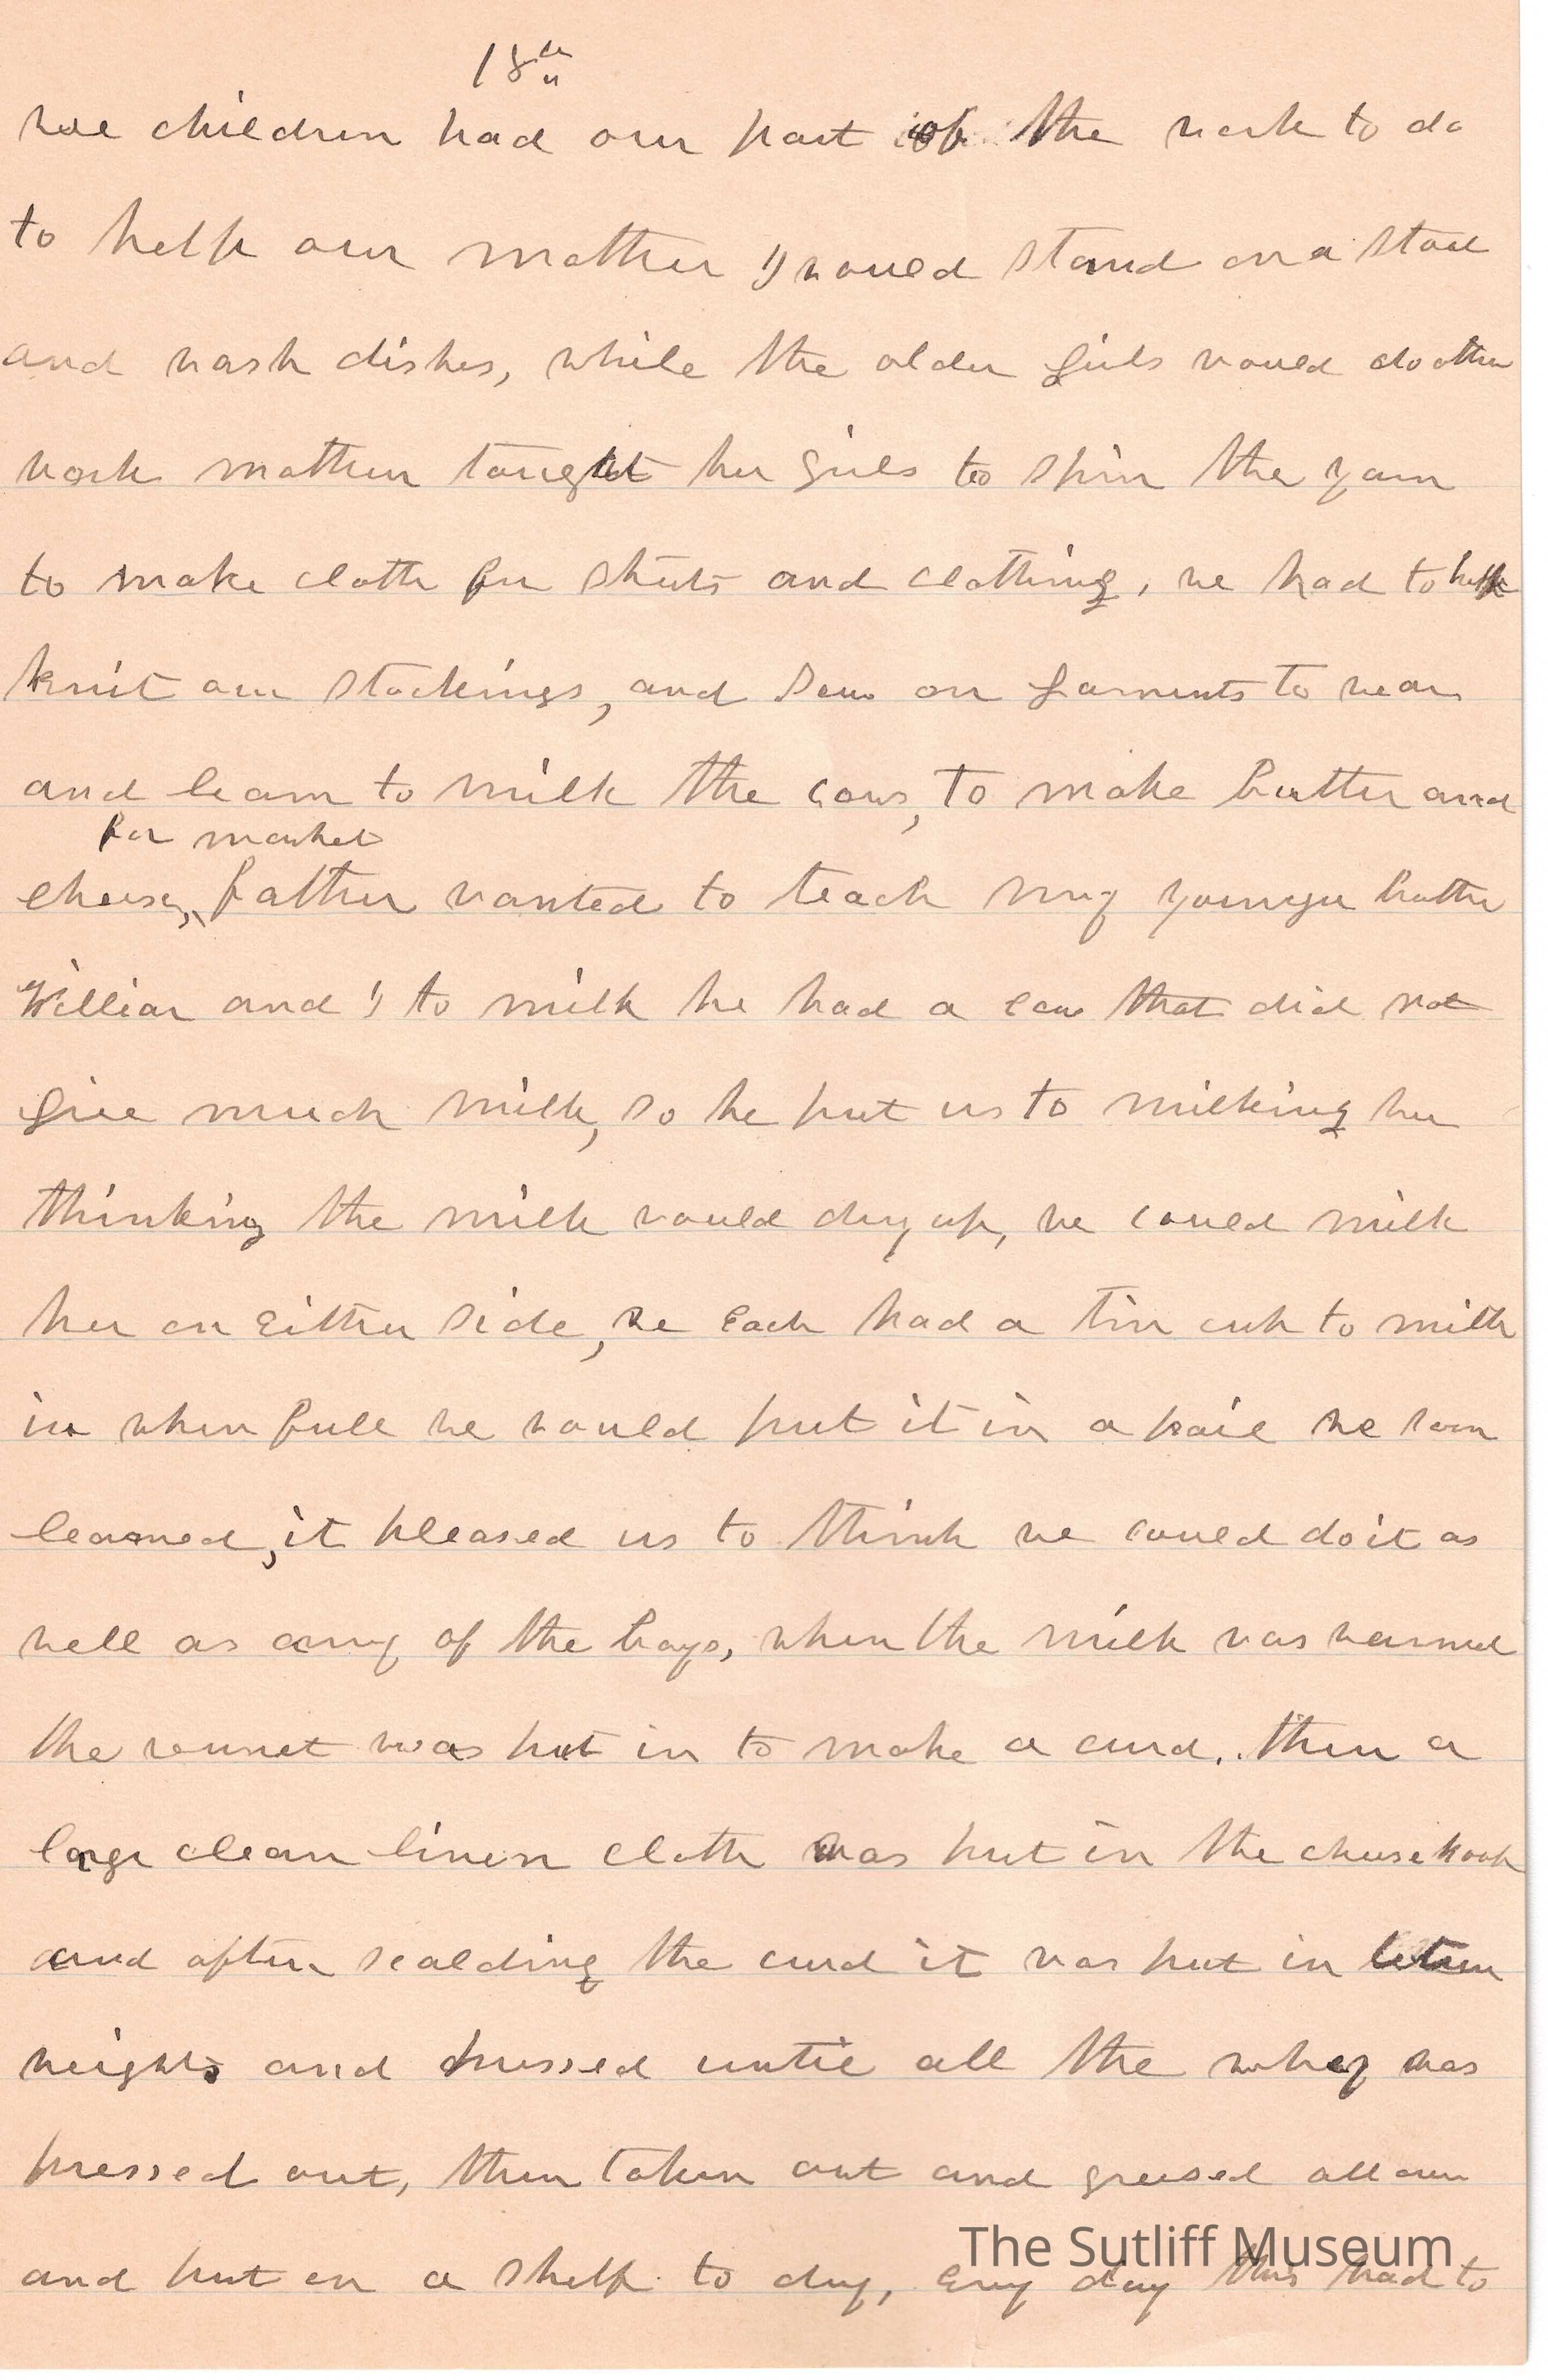 18th
we children had our part of the work to do
to help our mother I would stand on a stool
and wash dishes, while the older girls would do other
work mother taught her girls to spin the yarn
to make cloth for shirts and clothing, we had to help
knit our stockings, and sew on garments to wear
and learn to milk the cows, to make butter and
for market
cheese, father wanted to teach my younger brother
William and I to milk he had a cow that did not
give much milk, so he put us to milking her
thinking the milk would dry up, we could milk
her on either side, we each had a tin cup to milk
in when full we would put it in a pail we soon
learned, it pleased us to think we could do it as
well as any of the boys, when the milk was warmed
the rennet was put in to make a curd.. then a
large clean linen cloth was put in the cheese hoop
and after scalding the curd it was put in
weights and pressed until all the whey was
pressed out, then taken out and greased all over
and put on a shelf to dry, every day this had to
The Sutliff Museum